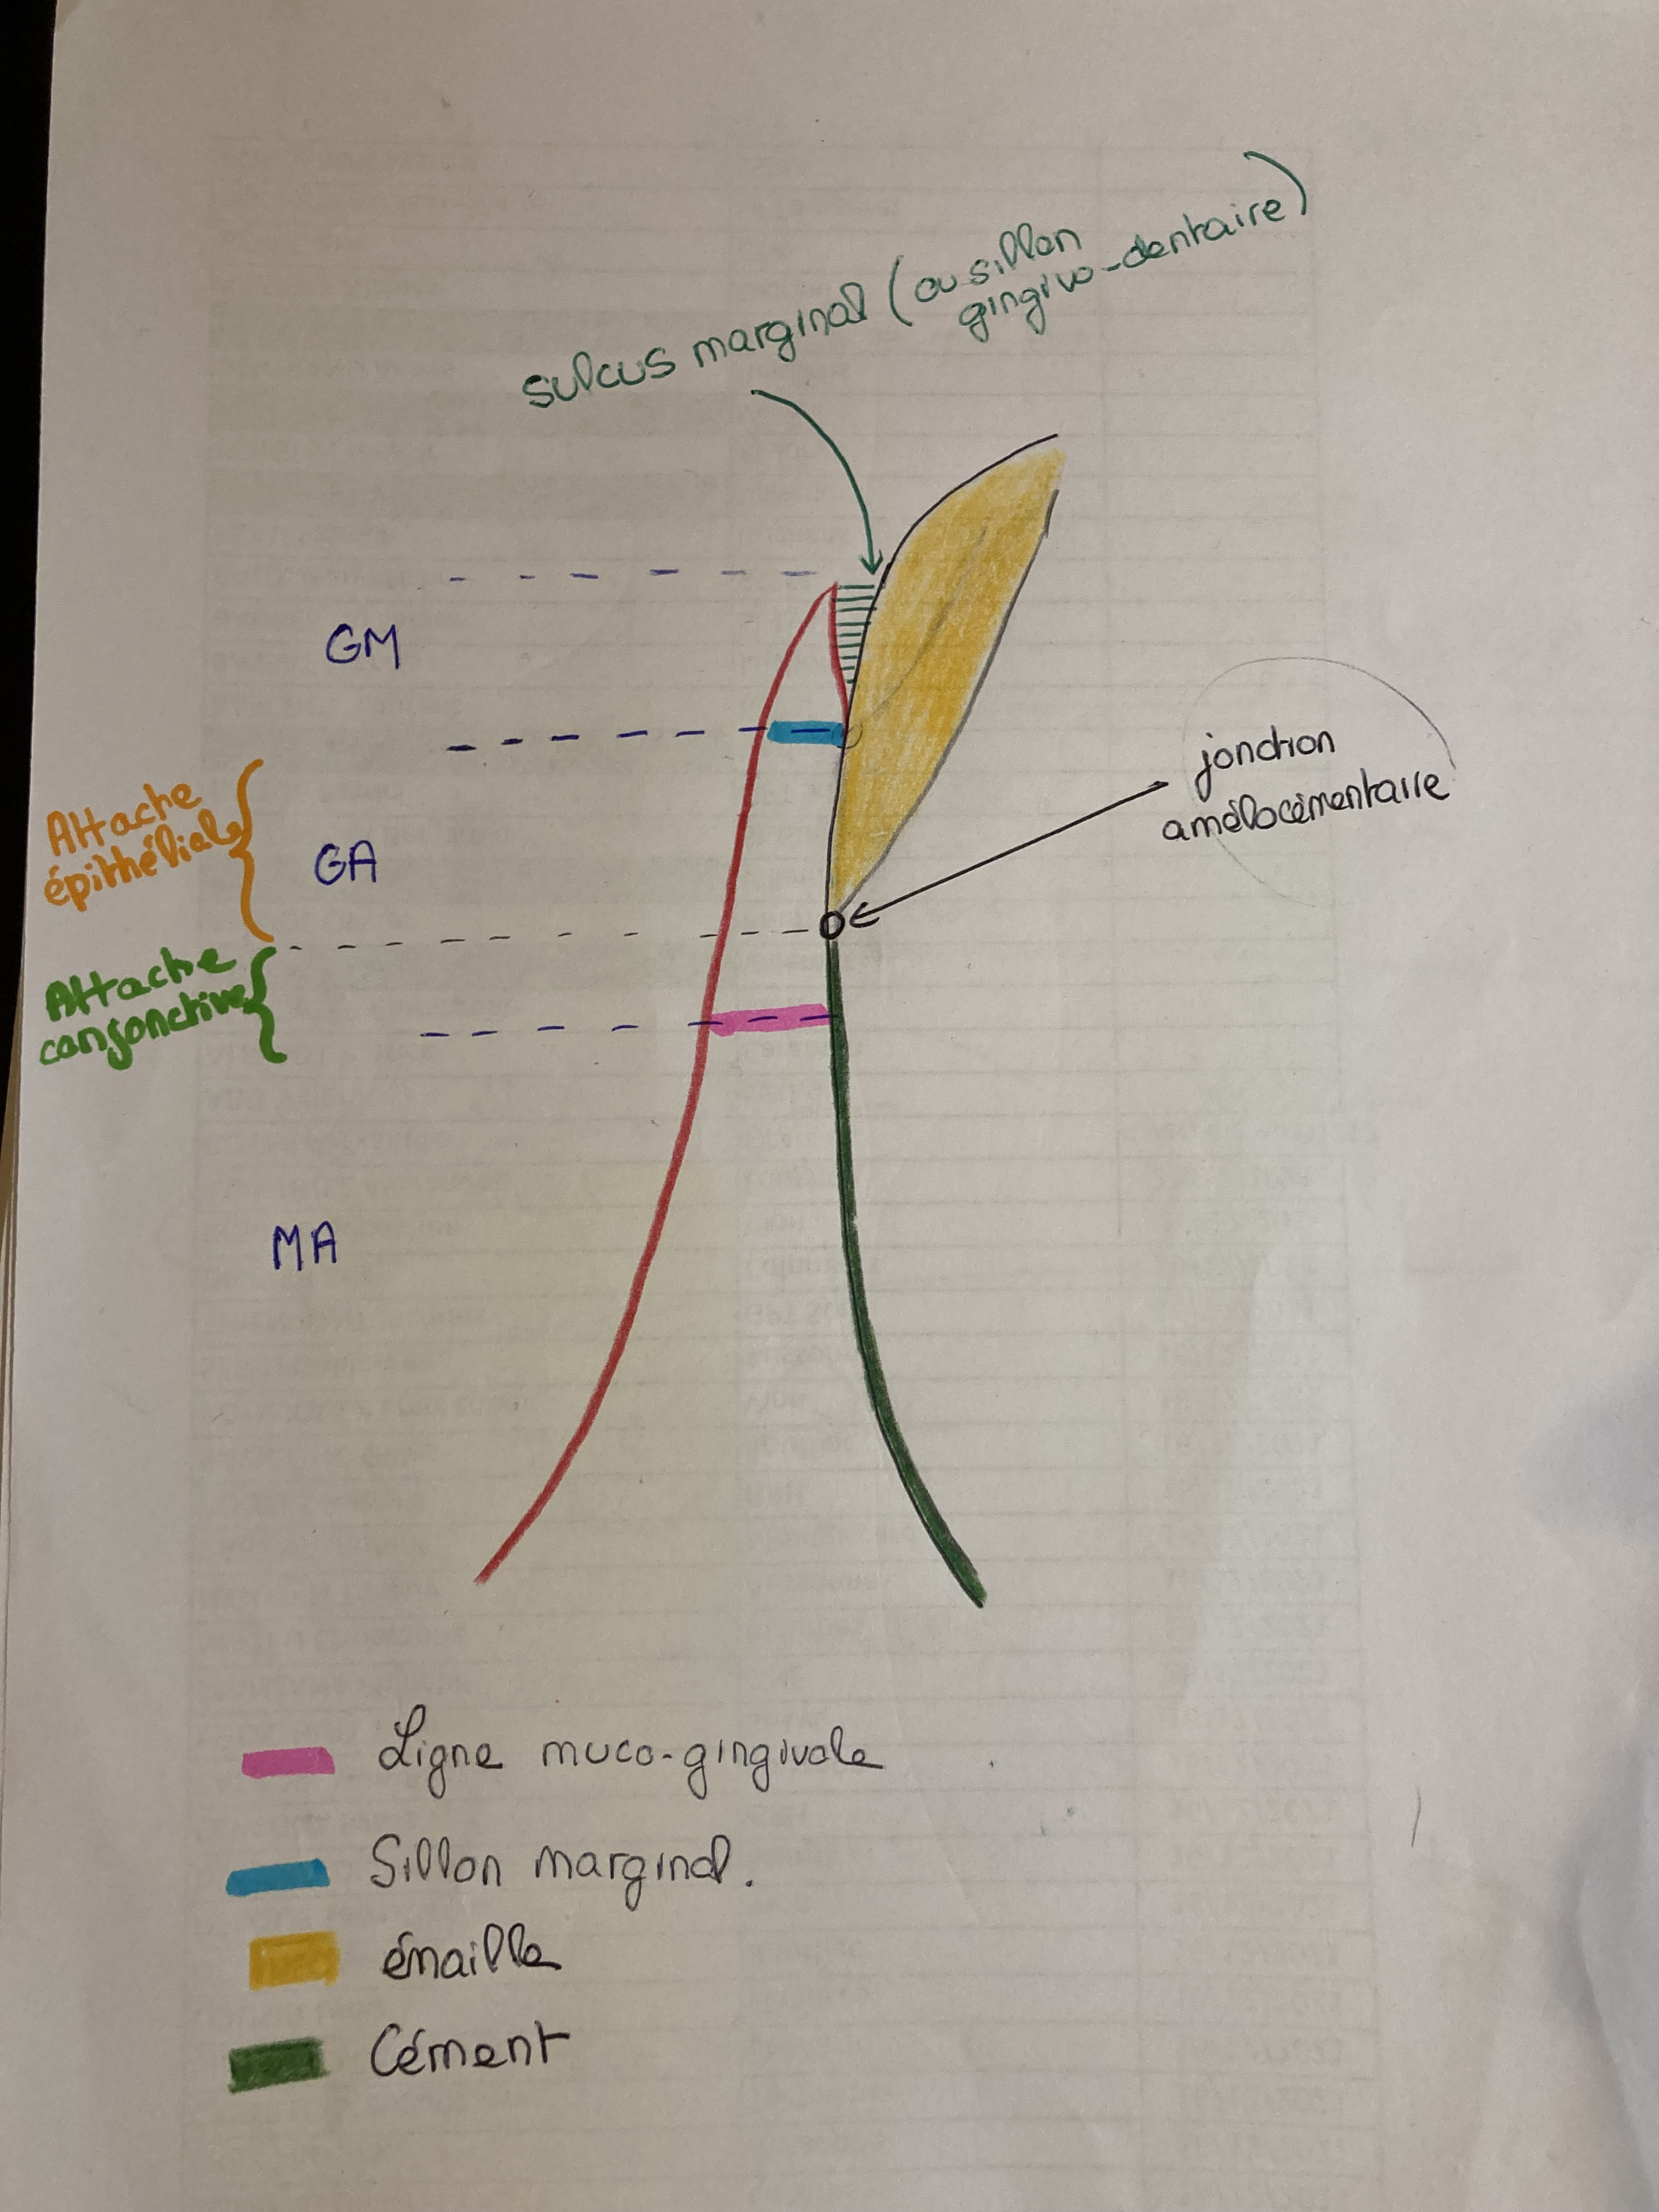 sulcus marginal (ou sillon
gingivo-dentaire)
GM
jonction
amélocémentaire
Attache
épithéliale
GA
Attache
conjonctive
MA
Ligne muco-gingivale
Sillon marginal.
émaille
Cément